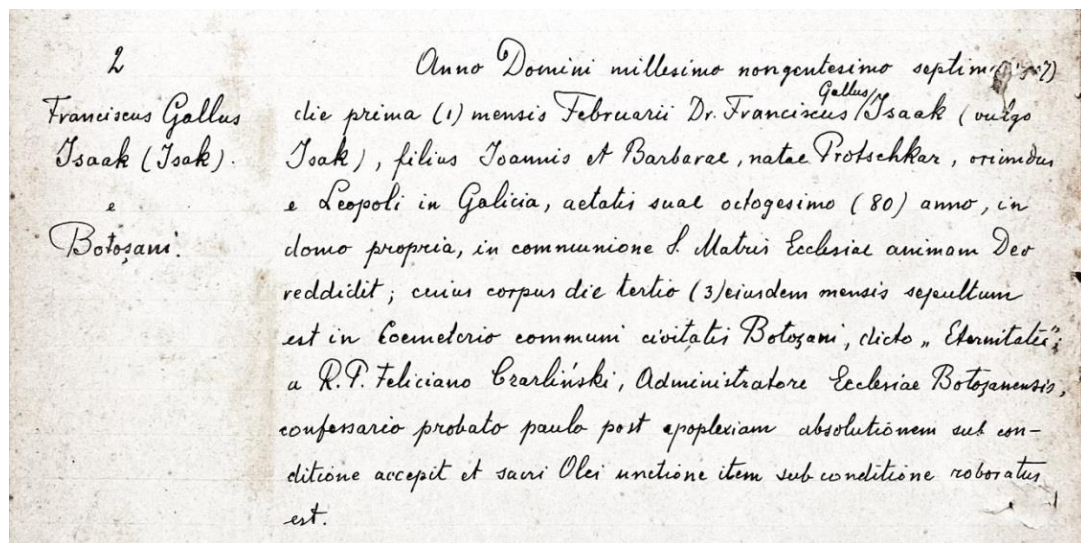 2
Franciscus Gallus
Isaak (Isak).
e
Botoșani.
Anno Domini millesimo nongentesimo septimo
die prima (1) mensis Februarii Dr. Franciscus /Gallus/ Isaak (vulgo
Isak), filius Joannis et Barbarae, natae Protschkar, oriundus
e Leopoli in Galicia, aetatis suae octogesimo (80) anno, in
domo propria, in communione S. Matris Ecclesiae animam Deo
reddidit; cuius corpus die tertio (3) eiusdem mensis sepultum
est in Coemeterio communi civitatis Botoșani, dicto „Eternitatei";
a R.P. Feliciano Czarliński, Administratore Ecclesiae Botoșanensis,
confessario probato paulo post apoplexiam absolutionem sub con-
ditione accepit et sacri Olei unctione item sub conditione roboratus
est.